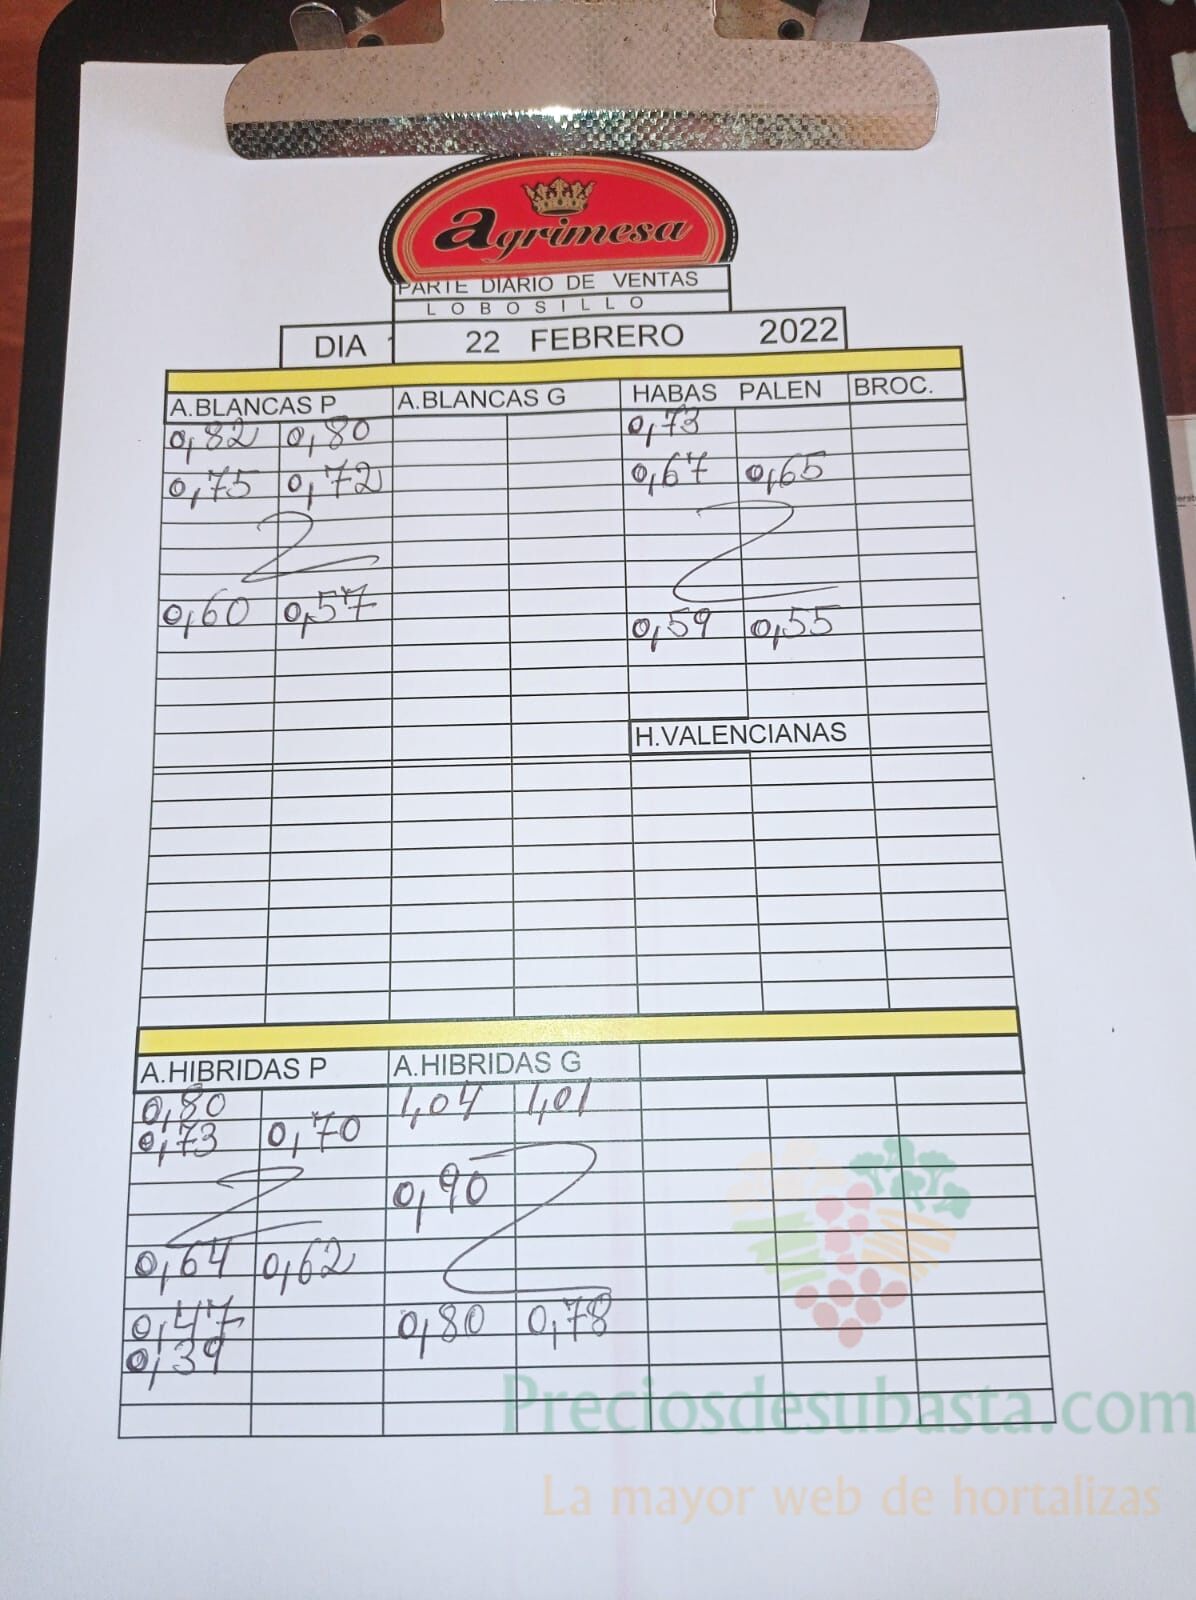 Agrimesa
PARTE DIARIO DE VENTAS
LOBOSILLO
DIA 22 FEBRERO 2022
A.BLANCAS P A.BLANCAS G HABAS PALEN BROC.
0,82 0,80 0,73
0,75 0,72 0,67 0,65
0,60 0,57 0,59 0,55
H.VALENCIANAS
A.HIBRIDAS P A.HIBRIDAS G
0,80 1,04 1,01
0,73 0,70
0,90
0,64 0,62
0,47 0,80 0,78
0,39
Preciosdesubasta.com
La mayor web de hortalizas